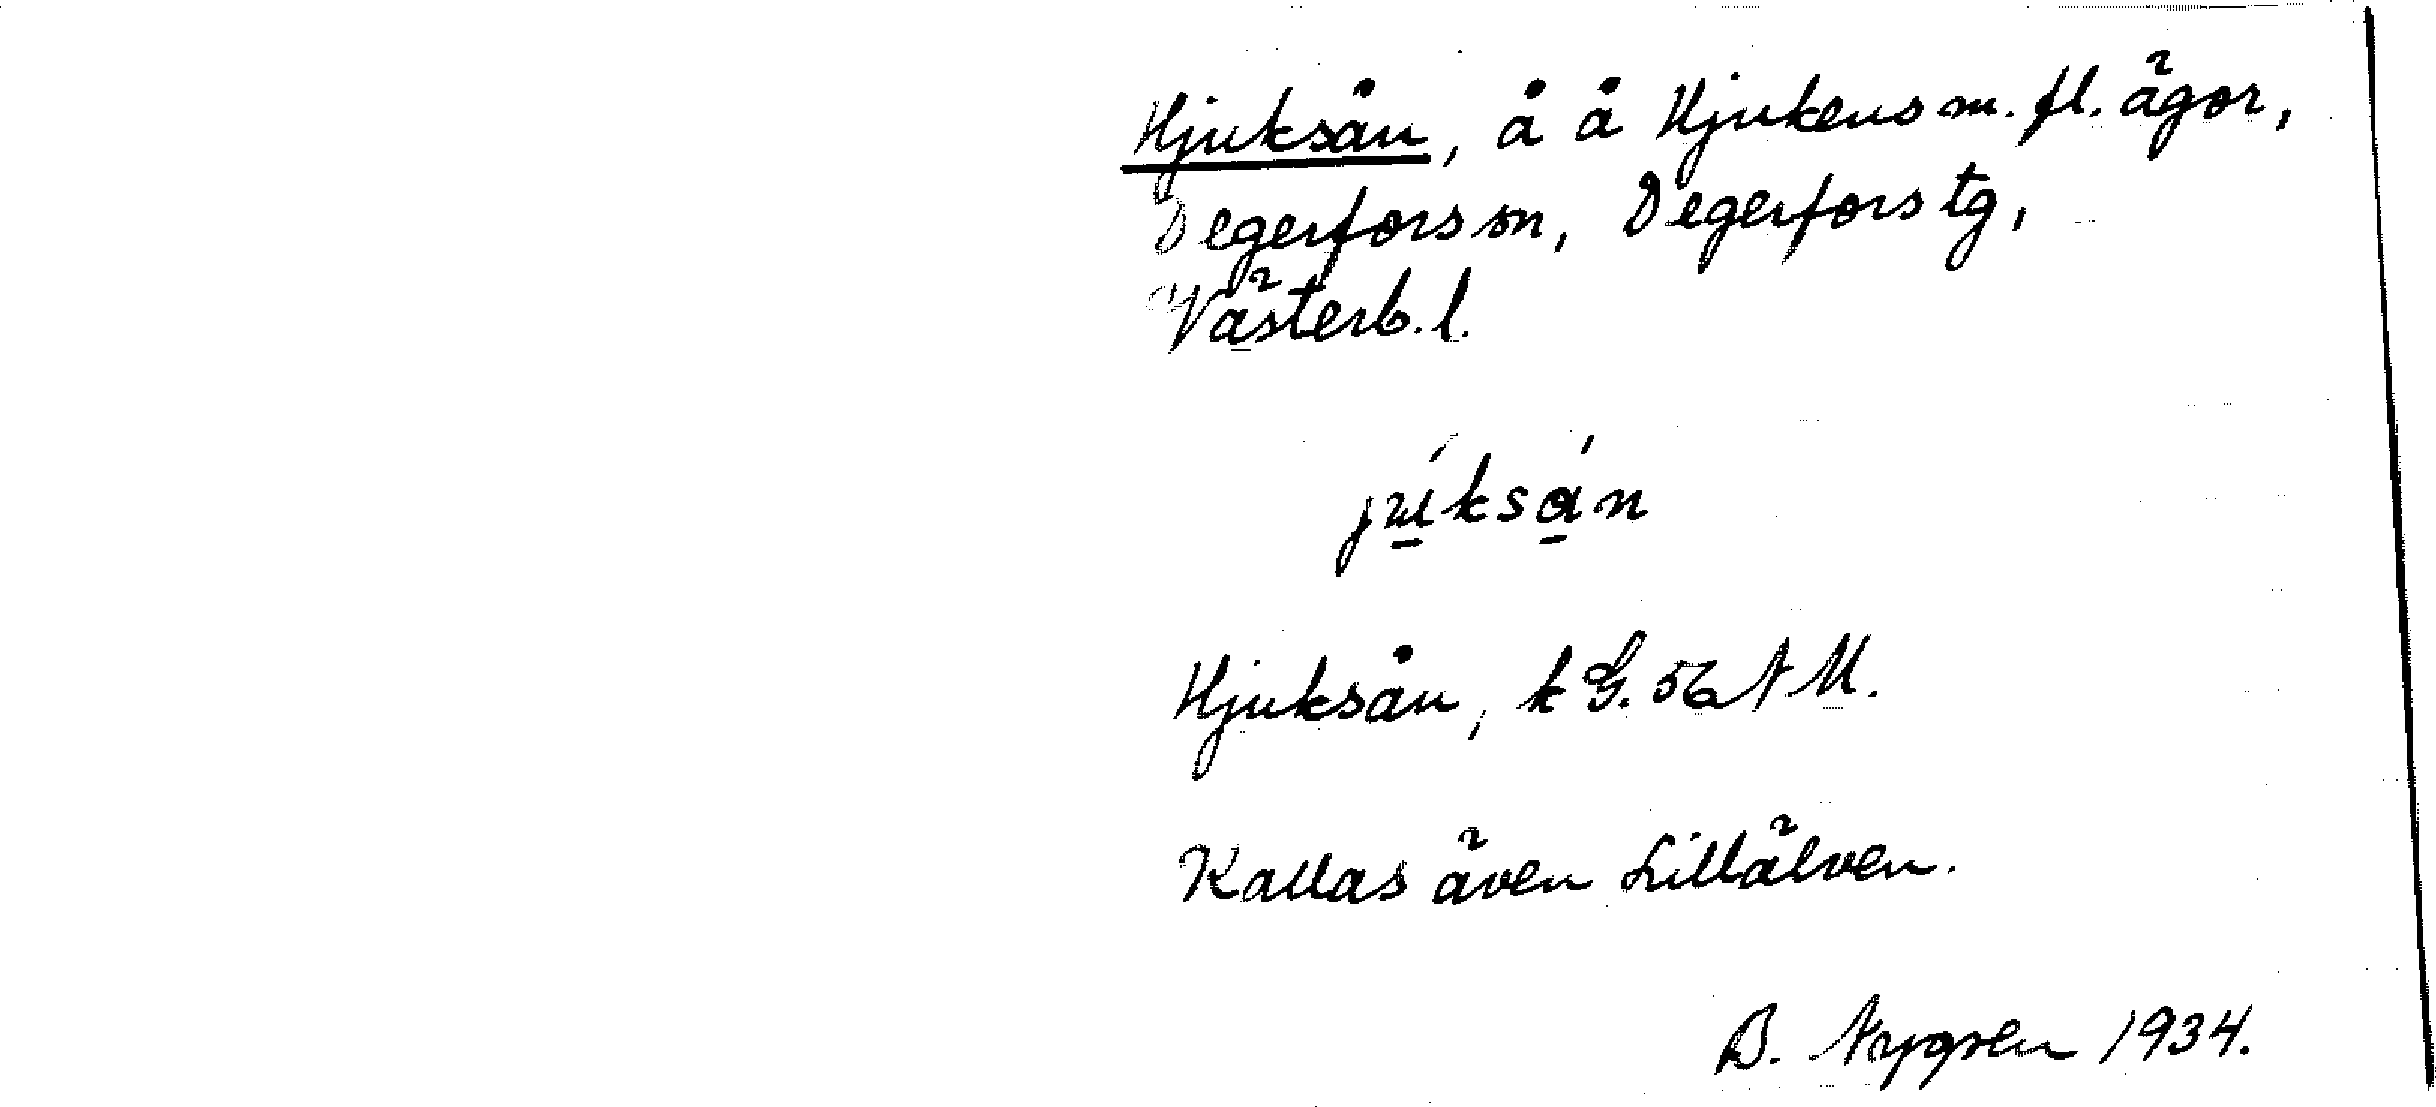 Hjuksån, å å Hjukens m. fl. ägor,
Degerfors sn, Degerfors tg,
Västerb. l.
Hjuksån, k G. 56 N M.
Kallas även Lillälven.
B. Nygren 1934.